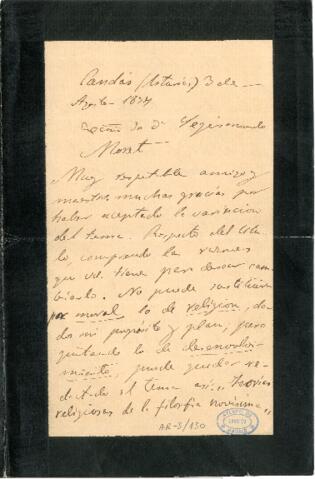 Candás (Asturias) 3 de
Agosto 1897
Segismundo
Moret
Muy respetable amigo y
maestro: muchas gracias por
haber aceptado la variación
del tema. Respecto del títu
lo, comprendo las razones
que vd. tiene para desear cam
biarlo. No puede sustituirse
por moral lo de religión, da
dos mi propósito y plan, pero
quitando lo de desenvolvi
miento, puede quedar re-
dactado el tema así: "Teorías
religiosas de la filosofía novísima"
AR-5/130